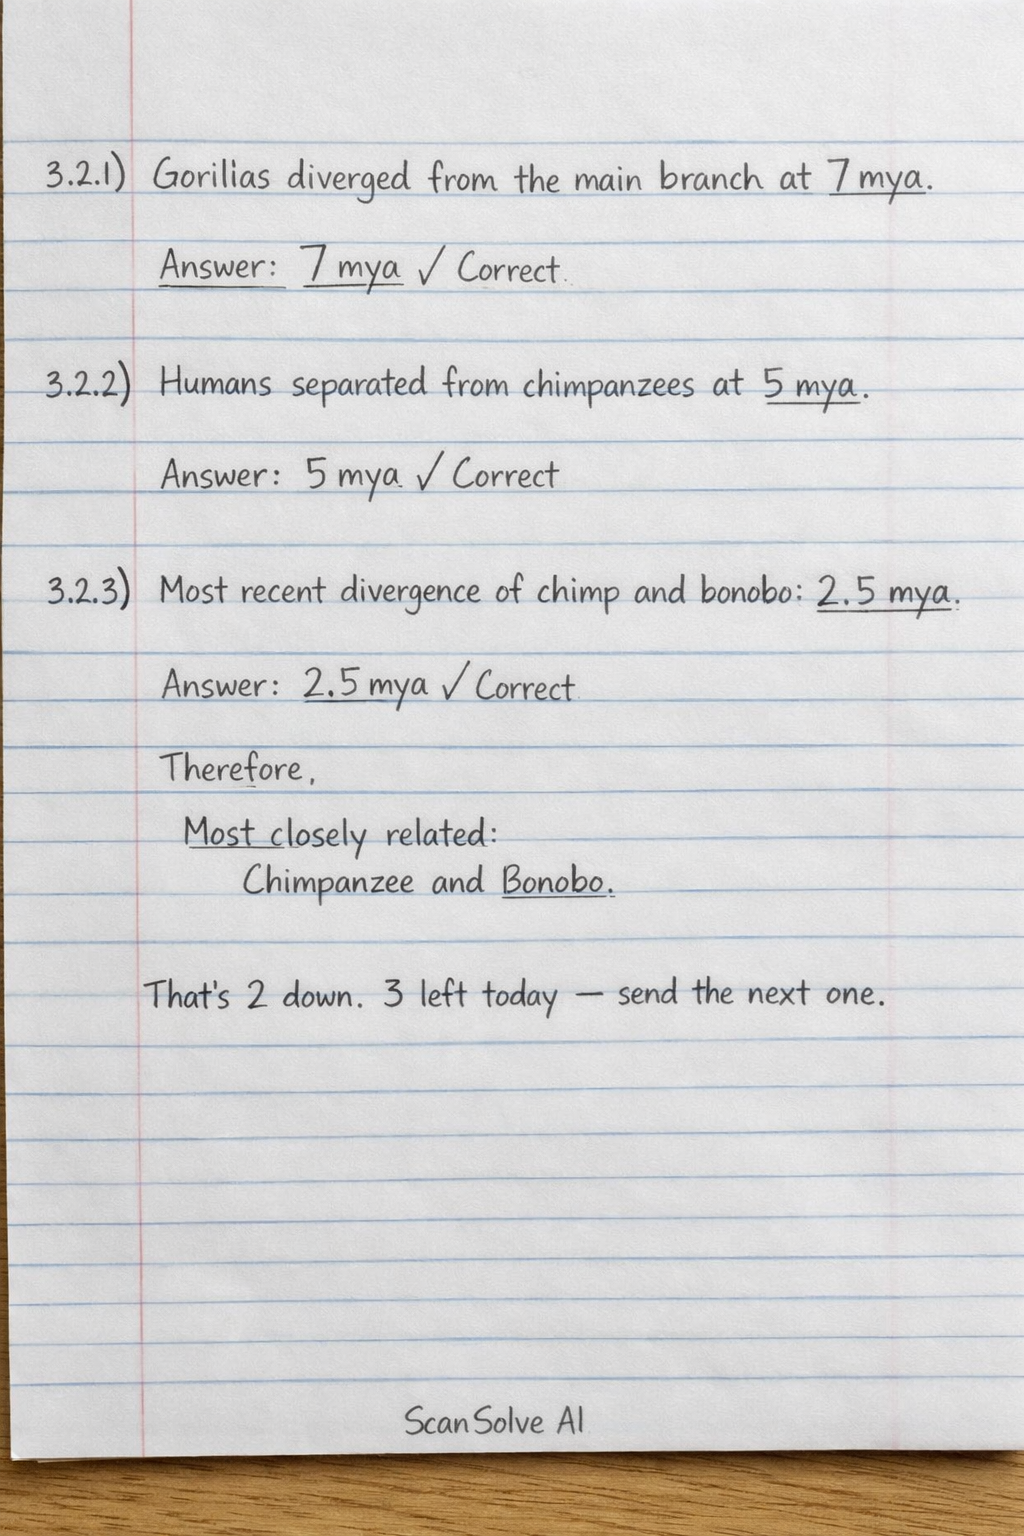 3.2.1) Gorilias diverged from the main branch at 7 mya.
Answer: 7 mya ✓ Correct.
3.2.2) Humans separated from chimpanzees at 5 mya.
Answer: 5 mya ✓ Correct
3.2.3) Most recent divergence of chimp and bonobo: 2.5 mya.
Answer: 2.5 mya ✓ Correct
Therefore,
Most closely related:
Chimpanzee and Bonobo.
That's 2 down. 3 left today — send the next one.
ScanSolve AI